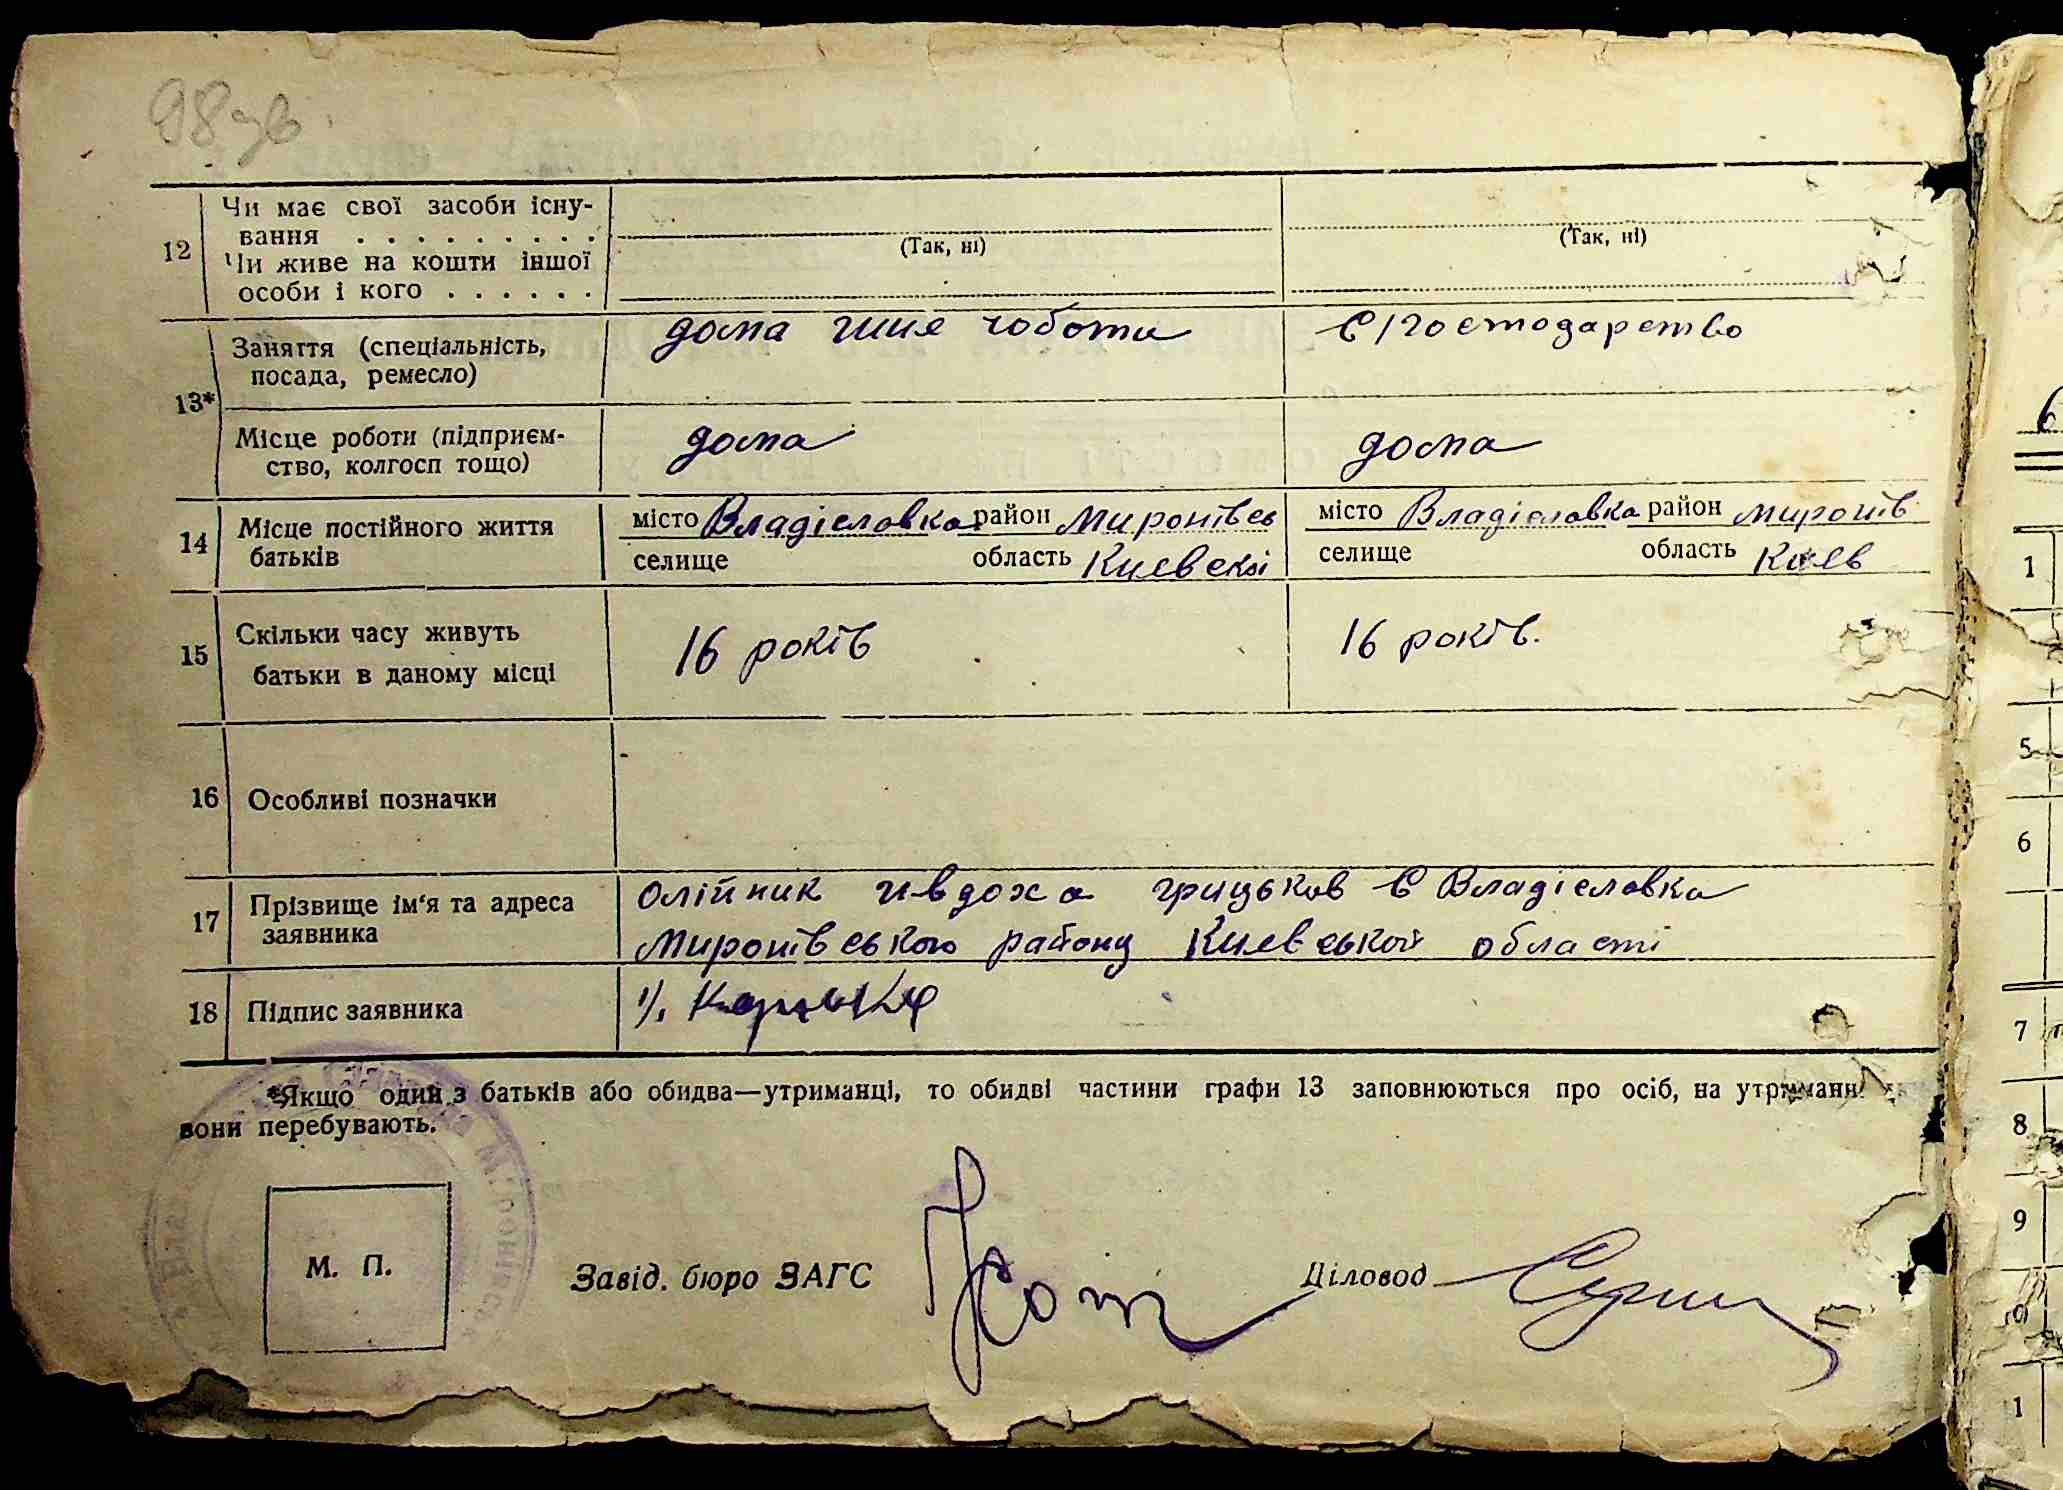 98 зв.
12 Чи має свої засоби існу-
вання . . . . . . . . . (Так, ні) (Так, ні)
Чи живе на кошти іншої
особи і кого . . . . . .
13* Заняття (спеціальність, дома шие чоботи С/господарство
посада, ремесло)
Місце роботи (підприєм- дома дома
ство, колгосп тощо)
14 Місце постійного життя місто Владіславка район Миронівсь місто Владіславка район Миронів
батьків селище область Києвскої селище область Києв
15 Скільки часу живуть 16 років 16 років.
батьки в даному місці
16 Особливі позначки
17 Прізвище ім'я та адреса Олійник Ивдоха грицьков С Владіславка
заявника Миронівського району Киевської області
18 Підпис заявника
*Якщо один з батьків або обидва—утриманці, то обидві частини графи 13 заповнюються про осіб, на утриманні
вони перебувають.
М. П.
Завід. бюро ЗАГС Діловод
6
1
5
6
7
8
9
1